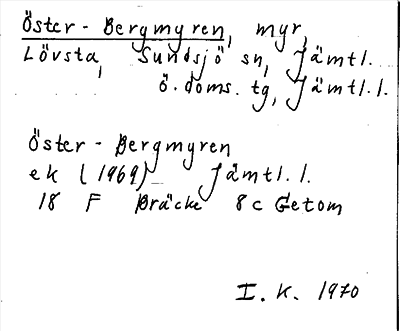 Öster-Bergmyren, myr,
Lövsta, Sundsjö sn, Jämtl.
ö. doms. tg, Jämtl. l.
Öster-Bergmyren
ek (1969) Jämtl. l.
18 F Bräcke 8c Getom
I. K. 1970